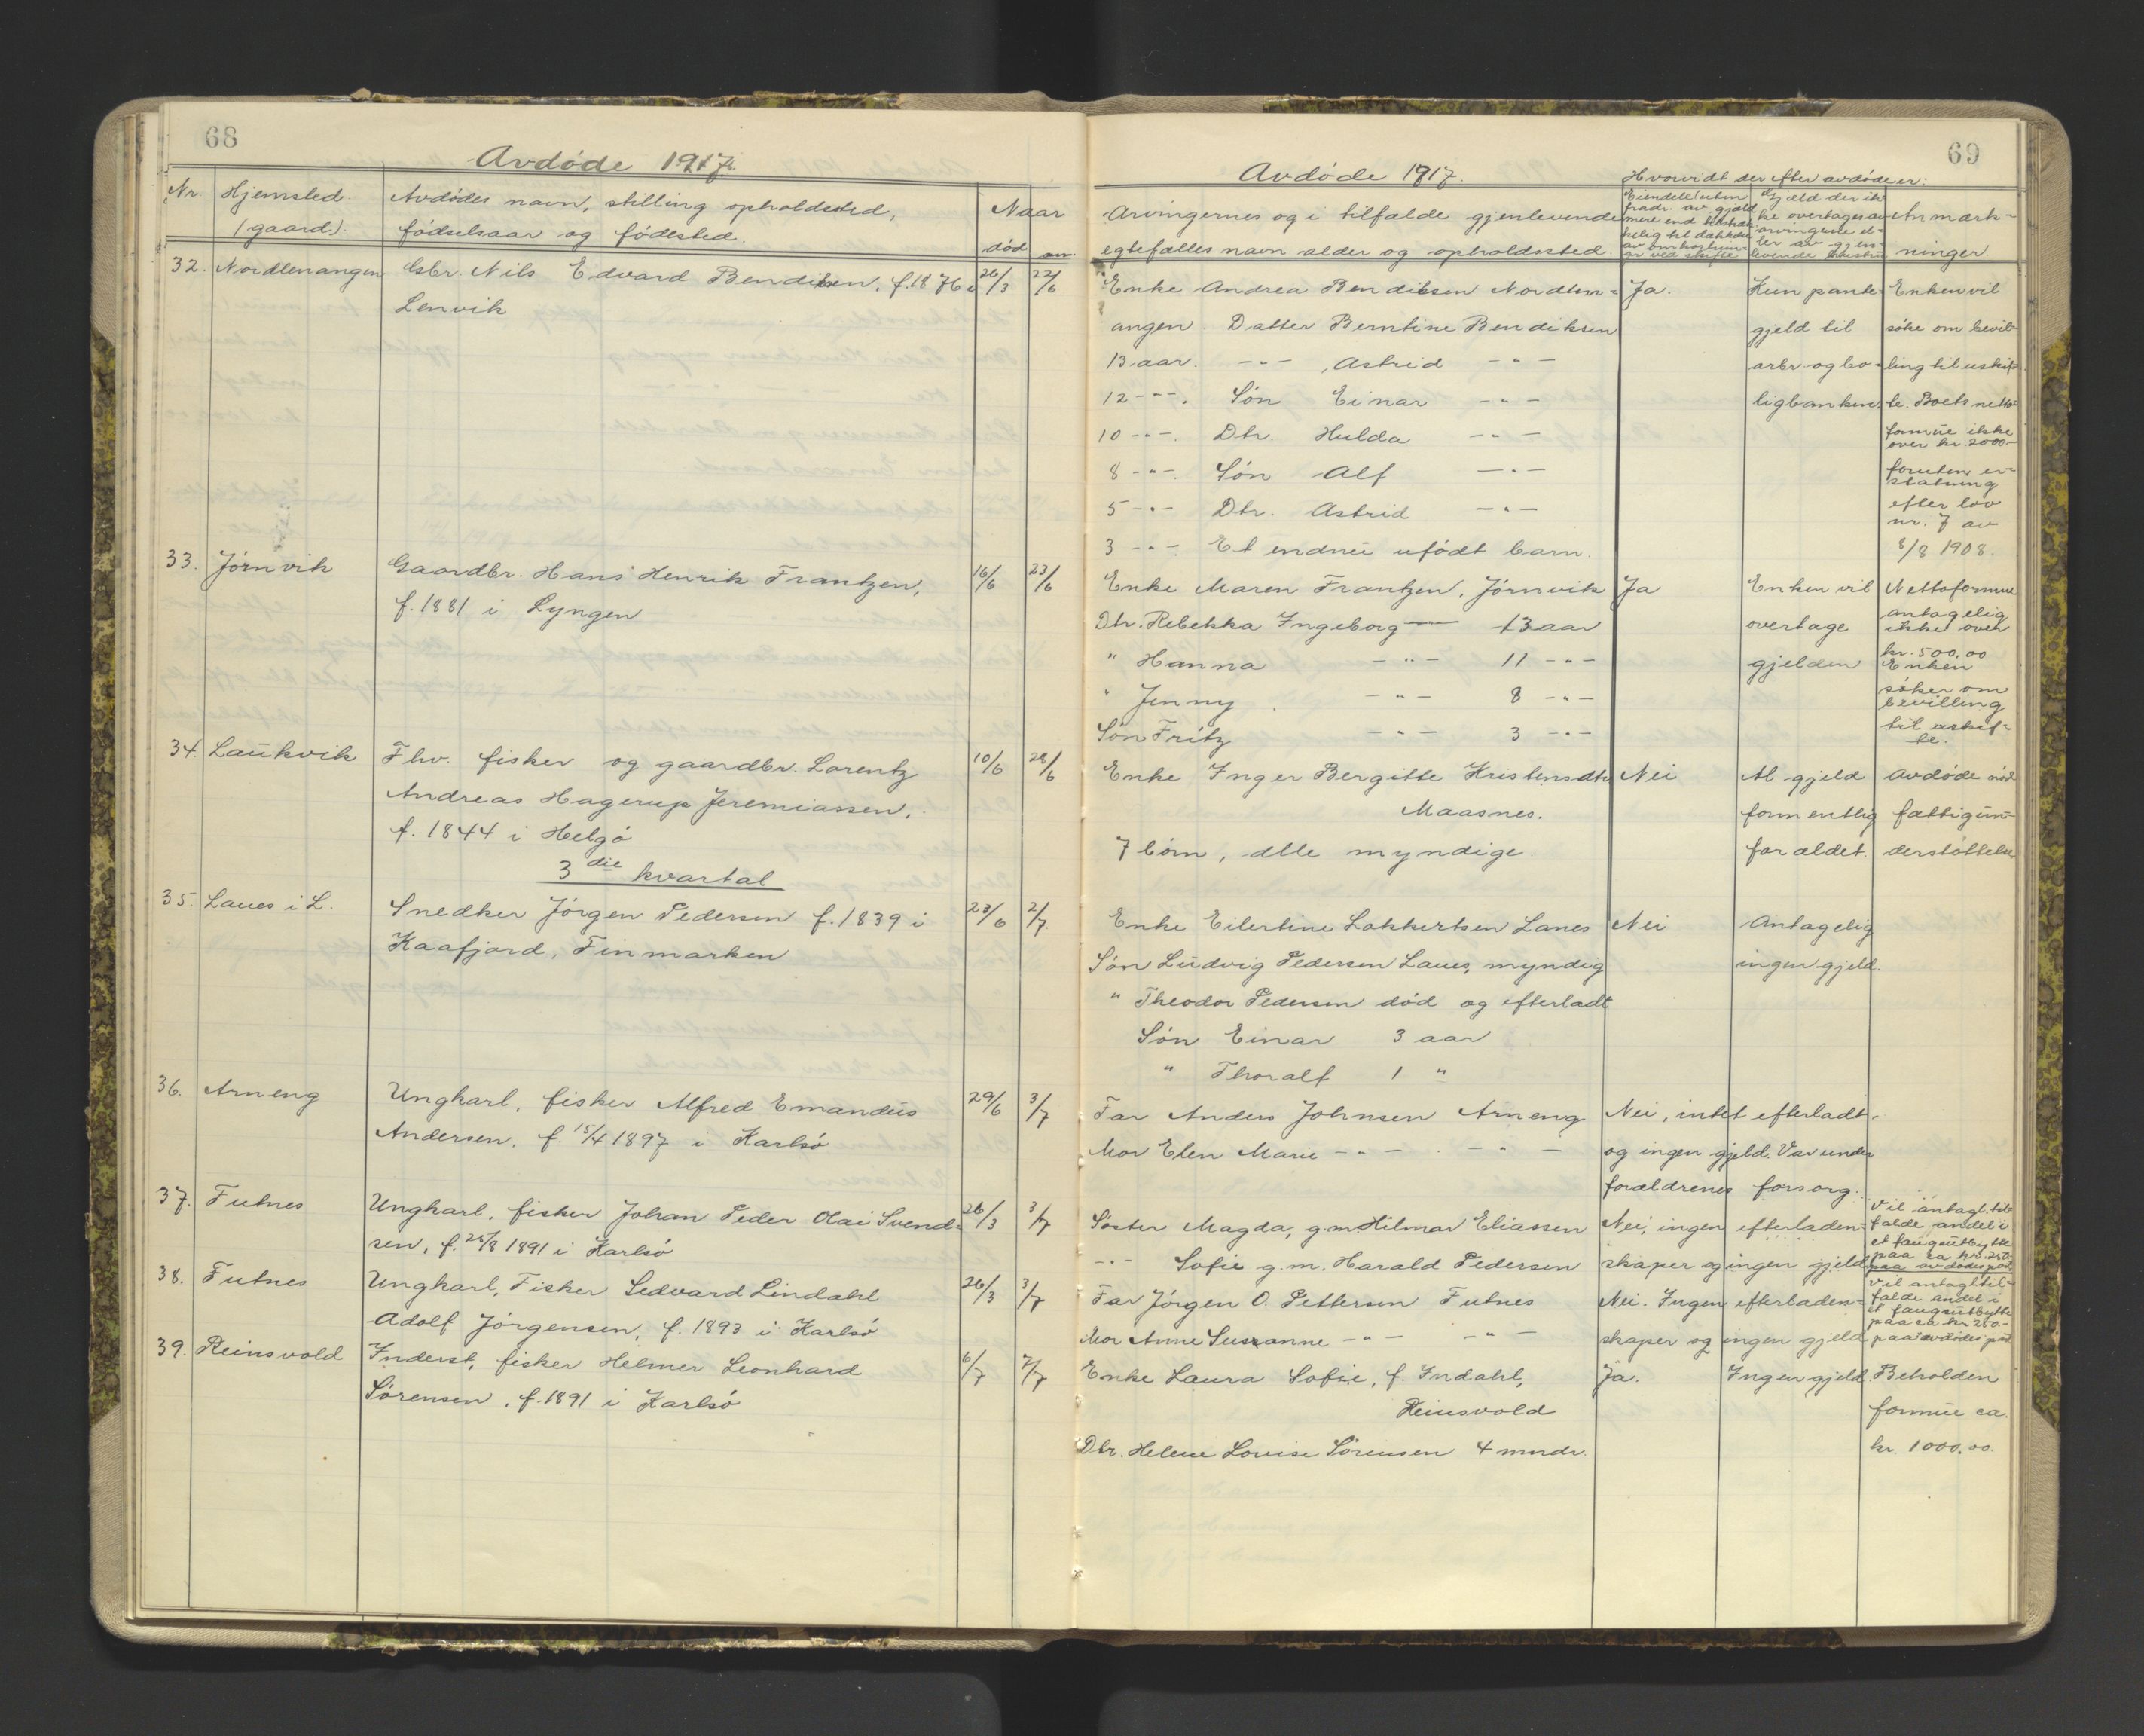 68
Avdøde 1917.
Nr. Hjemsted (gaard).
Avdødes navn, stilling opholdssted,
fødselsaar og fødested.
Naar
død an.
32. Nordlenangen Gbr. Nils Edvard Bendiksen, f. 1876 i 26/3 22/6
Lenvik
33. Jørnvik Gaardbr. Hans Henrik Frantzen, 16/6 23/6
f. 1881 i Lyngen
34. Laukvik Fhv. fisker og gaardbr. Lorentz 10/6 28/6
Andreas Hagerup Jeremiassen,
f. 1844 i Helgø
3die kvartal
35. Lanes i L. Snedker Jørgen Pedersen f. 1839 i 23/6 2/7.
Kaafjord, Finmarken
36. Arneng Ungkarl, fisker Alfred Emandus 29/6 3/7
Andersen, f. 15/4 1897 i Karlsø
37. Futnes Ungkarl, fisker Johan Peder Olai Svend- 26/3 3/7
sen, f. 28/8 1891 i Karlsø
38. Futnes Ungkarl, Fisker Sedvard Lindahl 26/3 3/7
Adolf Jørgensen, f. 1893 i Karlsø
39. Reinsvold Inderst, fisker Helmer Leonhard 6/7 7/7
Sørensen, f. 1891 i Karlsø
69
Avdøde 1917.
Hvorvidt der efter avdøde er:
Arvingernes og i tilfælde gjenlevende
egtefælles navn alder og opholdssted.
Eiendele utenfradr. av gjæld
mere end
kelig til dækkelse
av omkostnin-
ger ved skifte
Gjæld der ik-
ke overtages av
arvingene el-
ler av gjen-
levende hustru
Anmærk-
ninger.
Enke Andrea Bendiksen Nordlen- Ja. Kun pante- Enken vil
angen. Datter Berntine Bendiksen gjeld til søke om bevil-
13 aar. -"- , Astrid -"- arbr og bo- ling til uskif-
12 -"-. Søn Einar -"- ligbanken. te. Boets netto-
10 -"-. Dtr. Hulda -"- formue ikke
over kr. 2000.-
8 -"-. Søn Alf -"- foruten er-
statning
5 -"- Dtr. Astrid -"- efter lov
nr. 7 av
3 -"-. Et endnu ufødt barn. 8/8 1908.
Enke Maren Frantzen, Jørnvik Ja Enken vil Nettoformue
antagelig
Dtr. Rebekka Ingeborg — 13 aar overtage ikke over
kr. 500.00
" Hanna -"- 11 -"- gjelden Enken
søker om
" Jenny. -"- 8 -"- bevilling
til uskif-
Søn Fritz -"- 3 -"- te.
Enke Inger Bergitte Kristensdtr Nei Al gjeld Avdøde nød
Maasnes. formentlig fattigun-
7 børn, alle myndige. forældet. derstøttelse
Enke Eilertine Lokkertsen Lanes Nei Antagelig
Søn Ludvig Pedersen Lanes, myndig ingen gjeld.
" Theodor Pedersen død og efterladt
Søn Einar 3 aar
" Thoralf 1 "
Far Anders Johnsen Arneng Nei, intet efterladt.
Mor Elen Marie -"- . -"- og ingen gjeld. Var under
forældrenes forsorg.
Søster Magda, g.m. Hilmar Eliassen Nei, ingen efterladen-
-"- Sofie g.m. Harald Pedersen skaper og ingen gjeld
Vil antagl. til-
falde andel i
et fangstutbytte
paa ca kr. 250.-
paa avdødes part
Far Jørgen O. Pettersen Futnes Nei. Ingen efterladen-
Mor Anne Susanne -"- -"- skaper og ingen gjeld
Vil antagl til-
falde andel i
et fangstutbytte
paa ca kr 250.-
paa avdødes part
Enke Laura Sofie, f. Indahl, Ja. Ingen gjeld. Beholden
Reinsvold formue ca.
Dtr. Helene Lovise Sørensen 4 mndr. kr. 1000.00.